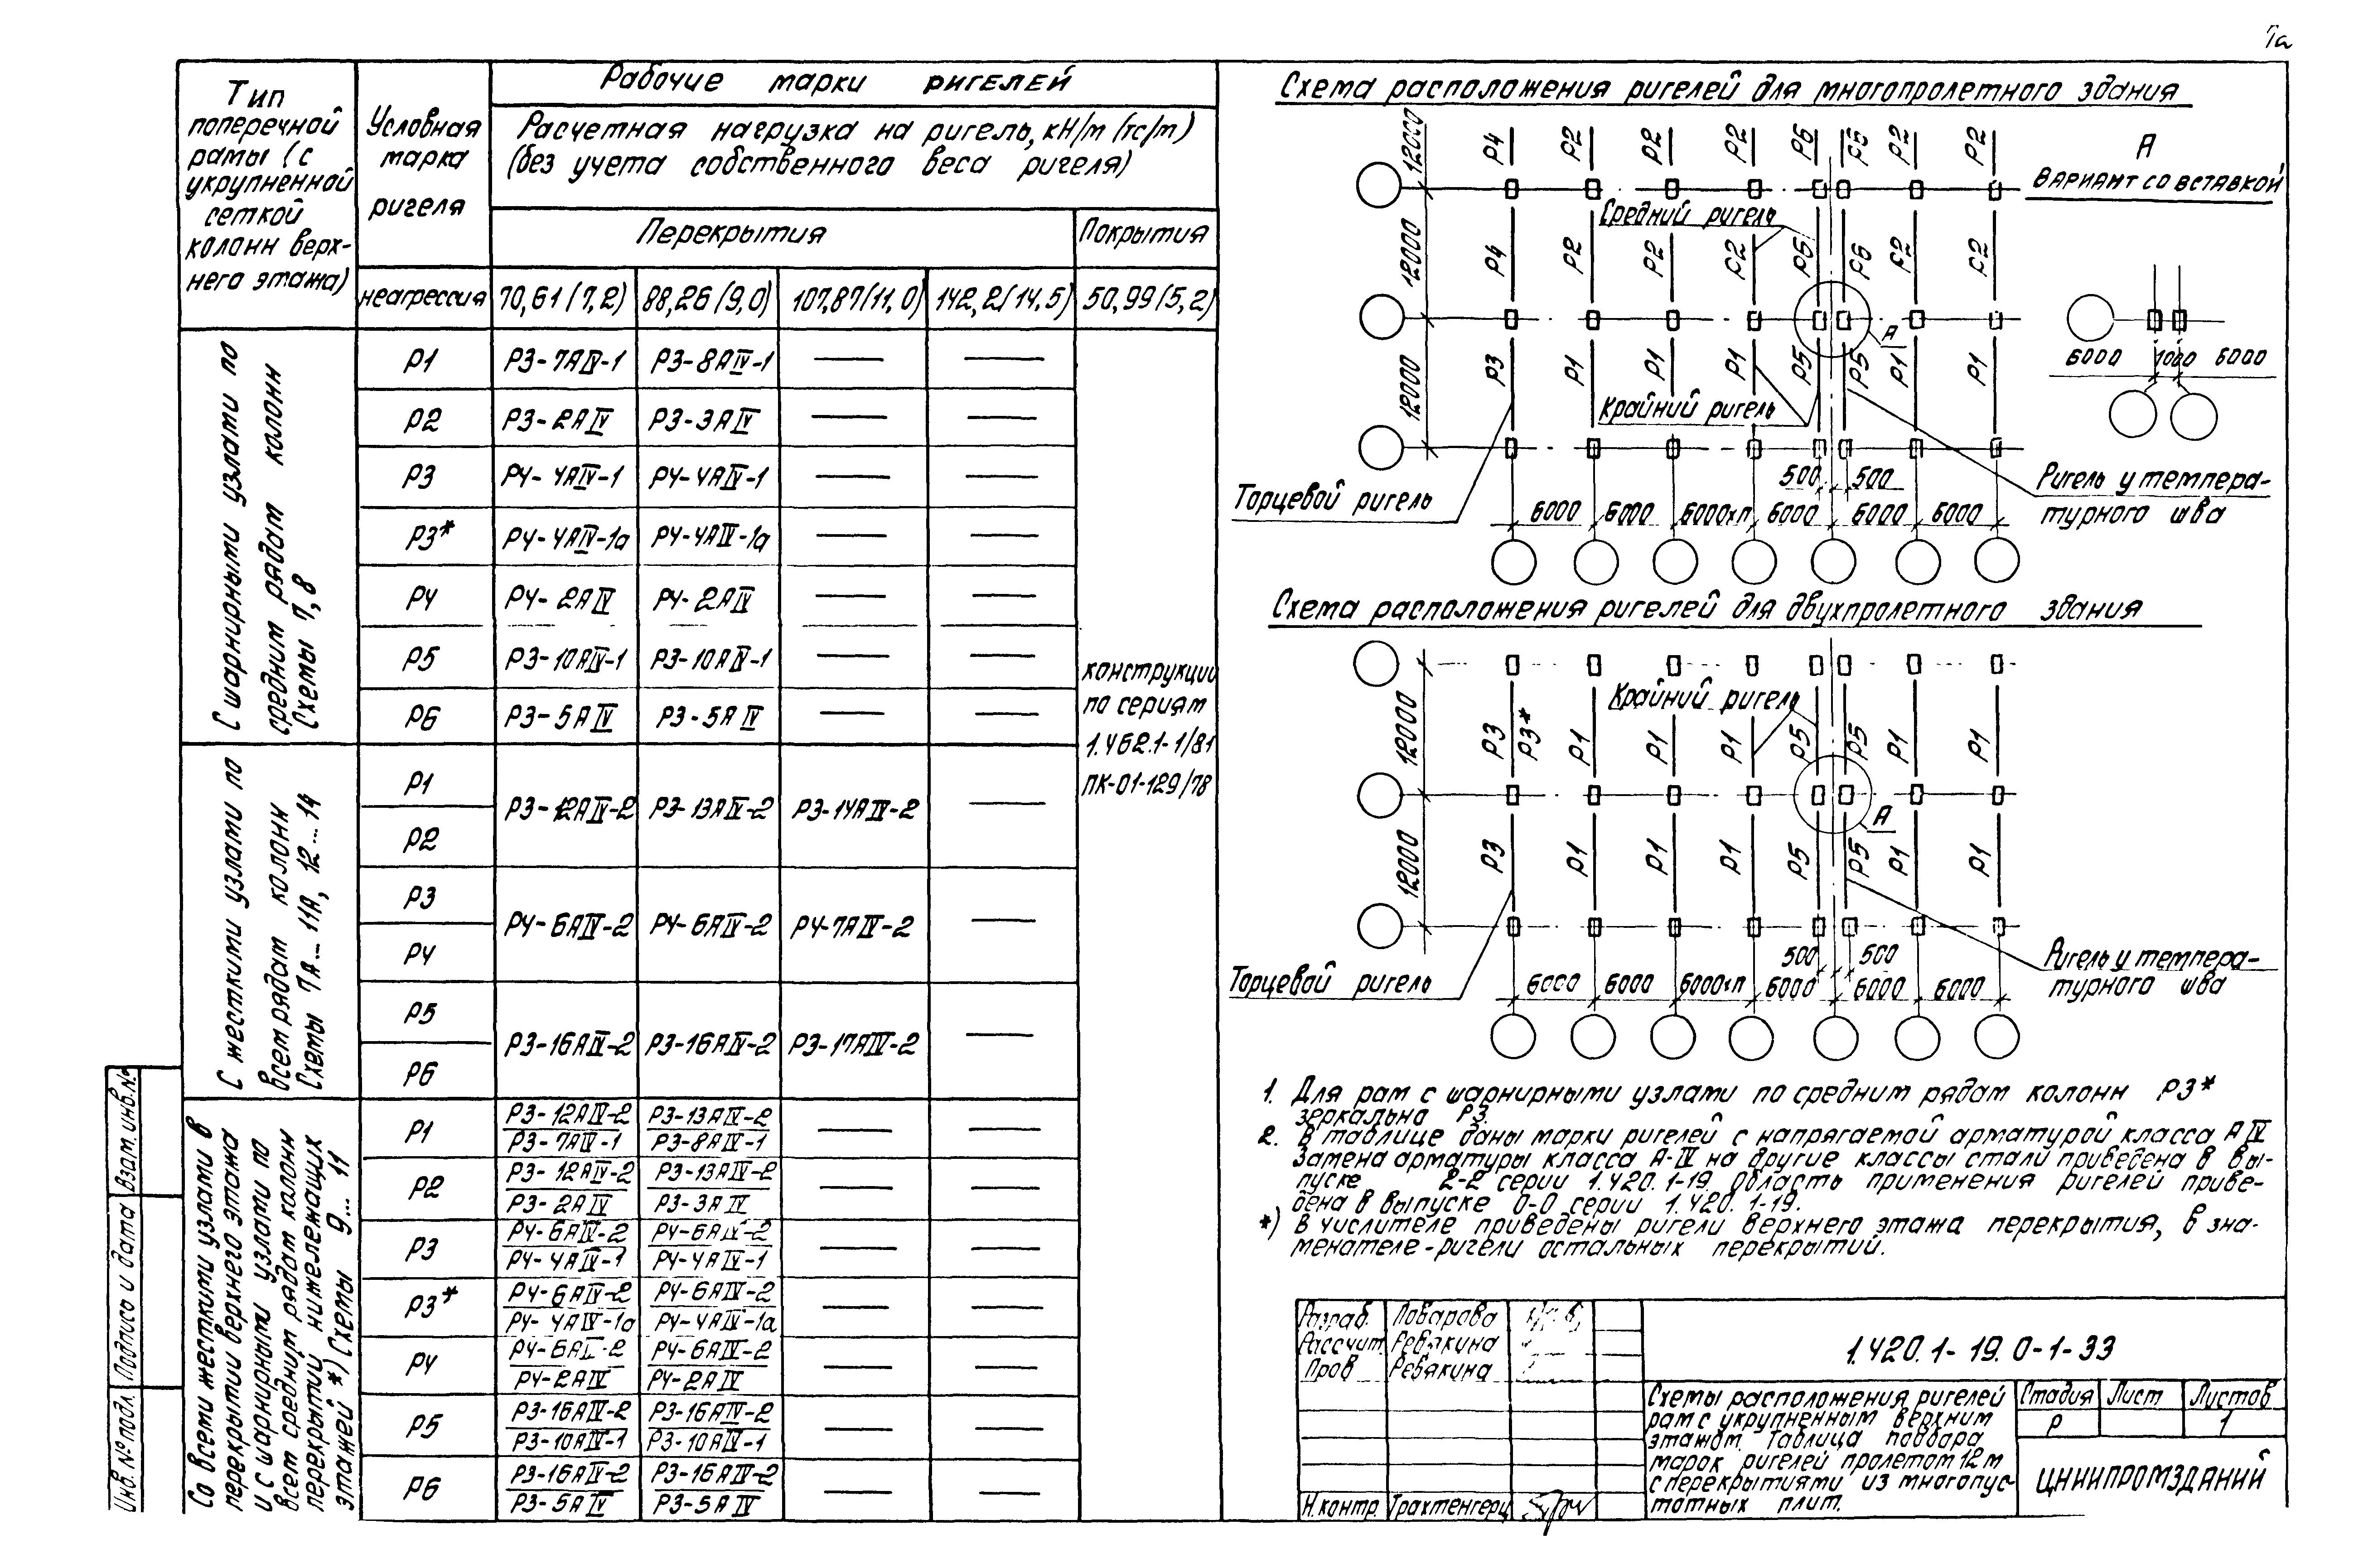 Тип
поперечной
рамы (с
укрупненной
сеткой
колонн верх-
него этажа)
Условная
марка
ригеля
неагрессия
Рабочие марки ригелей
Расчетная нагрузка на ригель, кН/м (тс/м)
(без учета собственного веса ригеля)
Перекрытия
Покрытия
70,61(7,2) 88,26(9,0) 107,87(11,0) 142,2(14,5) 50,99(5,2)
С шарнирными узлами по
средним рядам колонн
Схемы 7,8
Р1 Р3-7АIV-1 Р3-8АIV-1 — —
Р2 Р3-2АIV Р3-3АIV — —
Р3 Р4-4АIV-1 Р4-4АIV-1 — —
Р3* Р4-4АIV-1а Р4-4АIV-1а — —
Р4 Р4-2АIV Р4-2АIV — —
Р5 Р3-10АIV-1 Р3-10АIV-1 — —
Р6 Р3-5АIV Р3-5АIV — —
конструкции
по сериям
1.462.1-1/81
ПК-01-129/78
С жесткими узлами по
всем рядам колонн
Схемы 7А...11А, 12...14
Р1
Р3-12АIV-2 Р3-13АIV-2 Р3-14АIV-2 —
Р2
Р3
Р4-6АIV-2 Р4-6АIV-2 Р4-7АIV-2 —
Р4
Р5
Р3-16АIV-2 Р3-16АIV-2 Р3-17АIV-2 —
Р6
Со всеми жесткими узлами в
перекрытии верхнего этажа
и с шарнирными узлами по
всем средним рядам колонн
перекрытий нижележащих
этажей *) Схемы 9...11
Р3-12АIV-2 Р3-13АIV-2
Р1 — —
Р3-7АIV-1 Р3-8АIV-1
Р3-12АIV-2 Р3-13АIV-2
Р2 — —
Р3-2АIV Р3-3АIV
Р4-6АIV-2 Р4-6АIV-2
Р3 — —
Р4-4АIV-1 Р4-4АIV-1
Р4-6АIV-2 Р4-6АIV-2
Р3* — —
Р4-4АIV-1а Р4-4АIV-1а
Р4-6АIV-2 Р4-6АIV-2
Р4 — —
Р4-2АIV Р4-2АIV
Р3-16АIV-2 Р3-16АIV-2
Р5 — —
Р3-10АIV-1 Р3-10АIV-1
Р3-16АIV-2 Р3-16АIV-2
Р6 — —
Р3-5АIV Р3-5АIV
Взам.инв.№
Подпись и дата
Инв.№подл.
Схема расположения ригелей для многопролетного здания
12000 Р4 Р2 Р2 Р2 Р6 Р6 Р2 Р2
А
Вариант со вставкой
Средний ригель
12000 Р4 Р2 Р2 Р2 Р6 Р6 Р2 Р2
А
12000 Р3 Р1 Р1 Р1 Р5 Р5 Р1 Р1
6000 1000 6000
Крайний ригель
500 500
Торцевой ригель
Ригель у темпера-
турного шва
6000 6000 6000×п 6000 6000 6000
Схема расположения ригелей для двухпролетного здания
Крайний ригель
12000 Р3 Р3* Р1 Р1 Р1 Р5 Р5 Р1 Р1
А
12000 Р3 Р1 Р1 Р1 Р5 Р5 Р1 Р1
500 500
Торцевой ригель
Ригель у темпера-
турного шва
6000 6000 6000×п 6000 6000 6000
1. Для рам с шарнирными узлами по средним рядам колонн Р3*
зеркально Р3.
2. В таблице даны марки ригелей с напрягаемой арматурой класса АIV
Замена арматуры класса А-IV на другие классы стали приведена в вы-
пуске 2-2 серии 1.420.1-19. Область применения ригелей приве-
дена в выпуске 0-0 серии 1.420.1-19.
*) В числителе приведены ригели верхнего этажа перекрытия, в зна-
менателе-ригели остальных перекрытий.
Разраб. Поварова
Рассчит. Ревякина
Пров Ревякина
Н.контр. Трахтенгерц
1.420.1-19.0-1-33
Схемы расположения ригелей
рам с укрупненным верхним
этажом. Таблица подбора
марок ригелей пролетом 12м
с перекрытиями из многопус-
тотных плит.
Стадия Лист Листов
Р 1
ЦНИИПРОМЗДАНИЙ